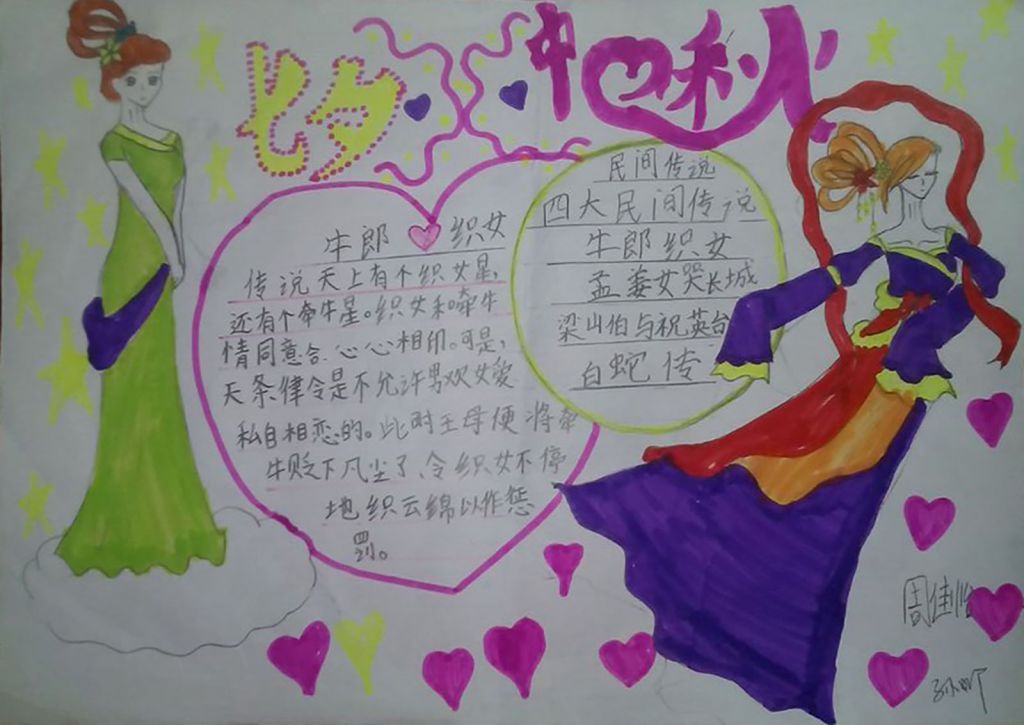 七夕
中秋
牛郎 织女
传说天上有个织女星,
还有个牵牛星。织女和牵牛
情同意合、心心相印。可是,
天条律令是不允许男欢女爱
私自相恋的。此时王母便将牵
牛贬下凡尘了、令织女不停
地织云绵以作惩
罚。
民间传说
四大民间传说
牛郎织女
孟姜女哭长城
梁山伯与祝英台
白蛇传
周佳怡